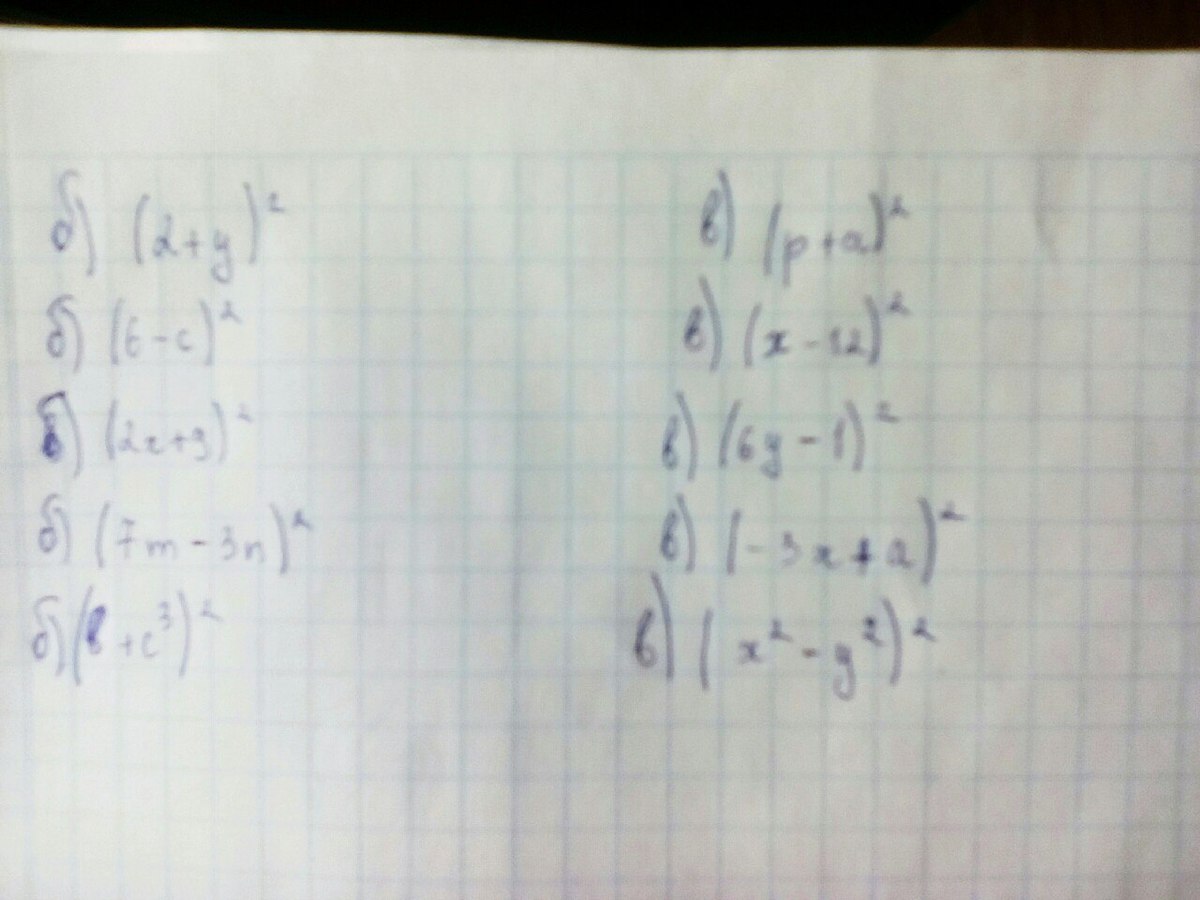 б) (2+y)²
б) (6-c)²
б) (2x+9)²
б) (7m-3n)²
б) (b+c³)²
в) (p+a)²
в) (x-12)²
в) (6y-1)²
в) (-3x+a)²
в) (x²-y²)²